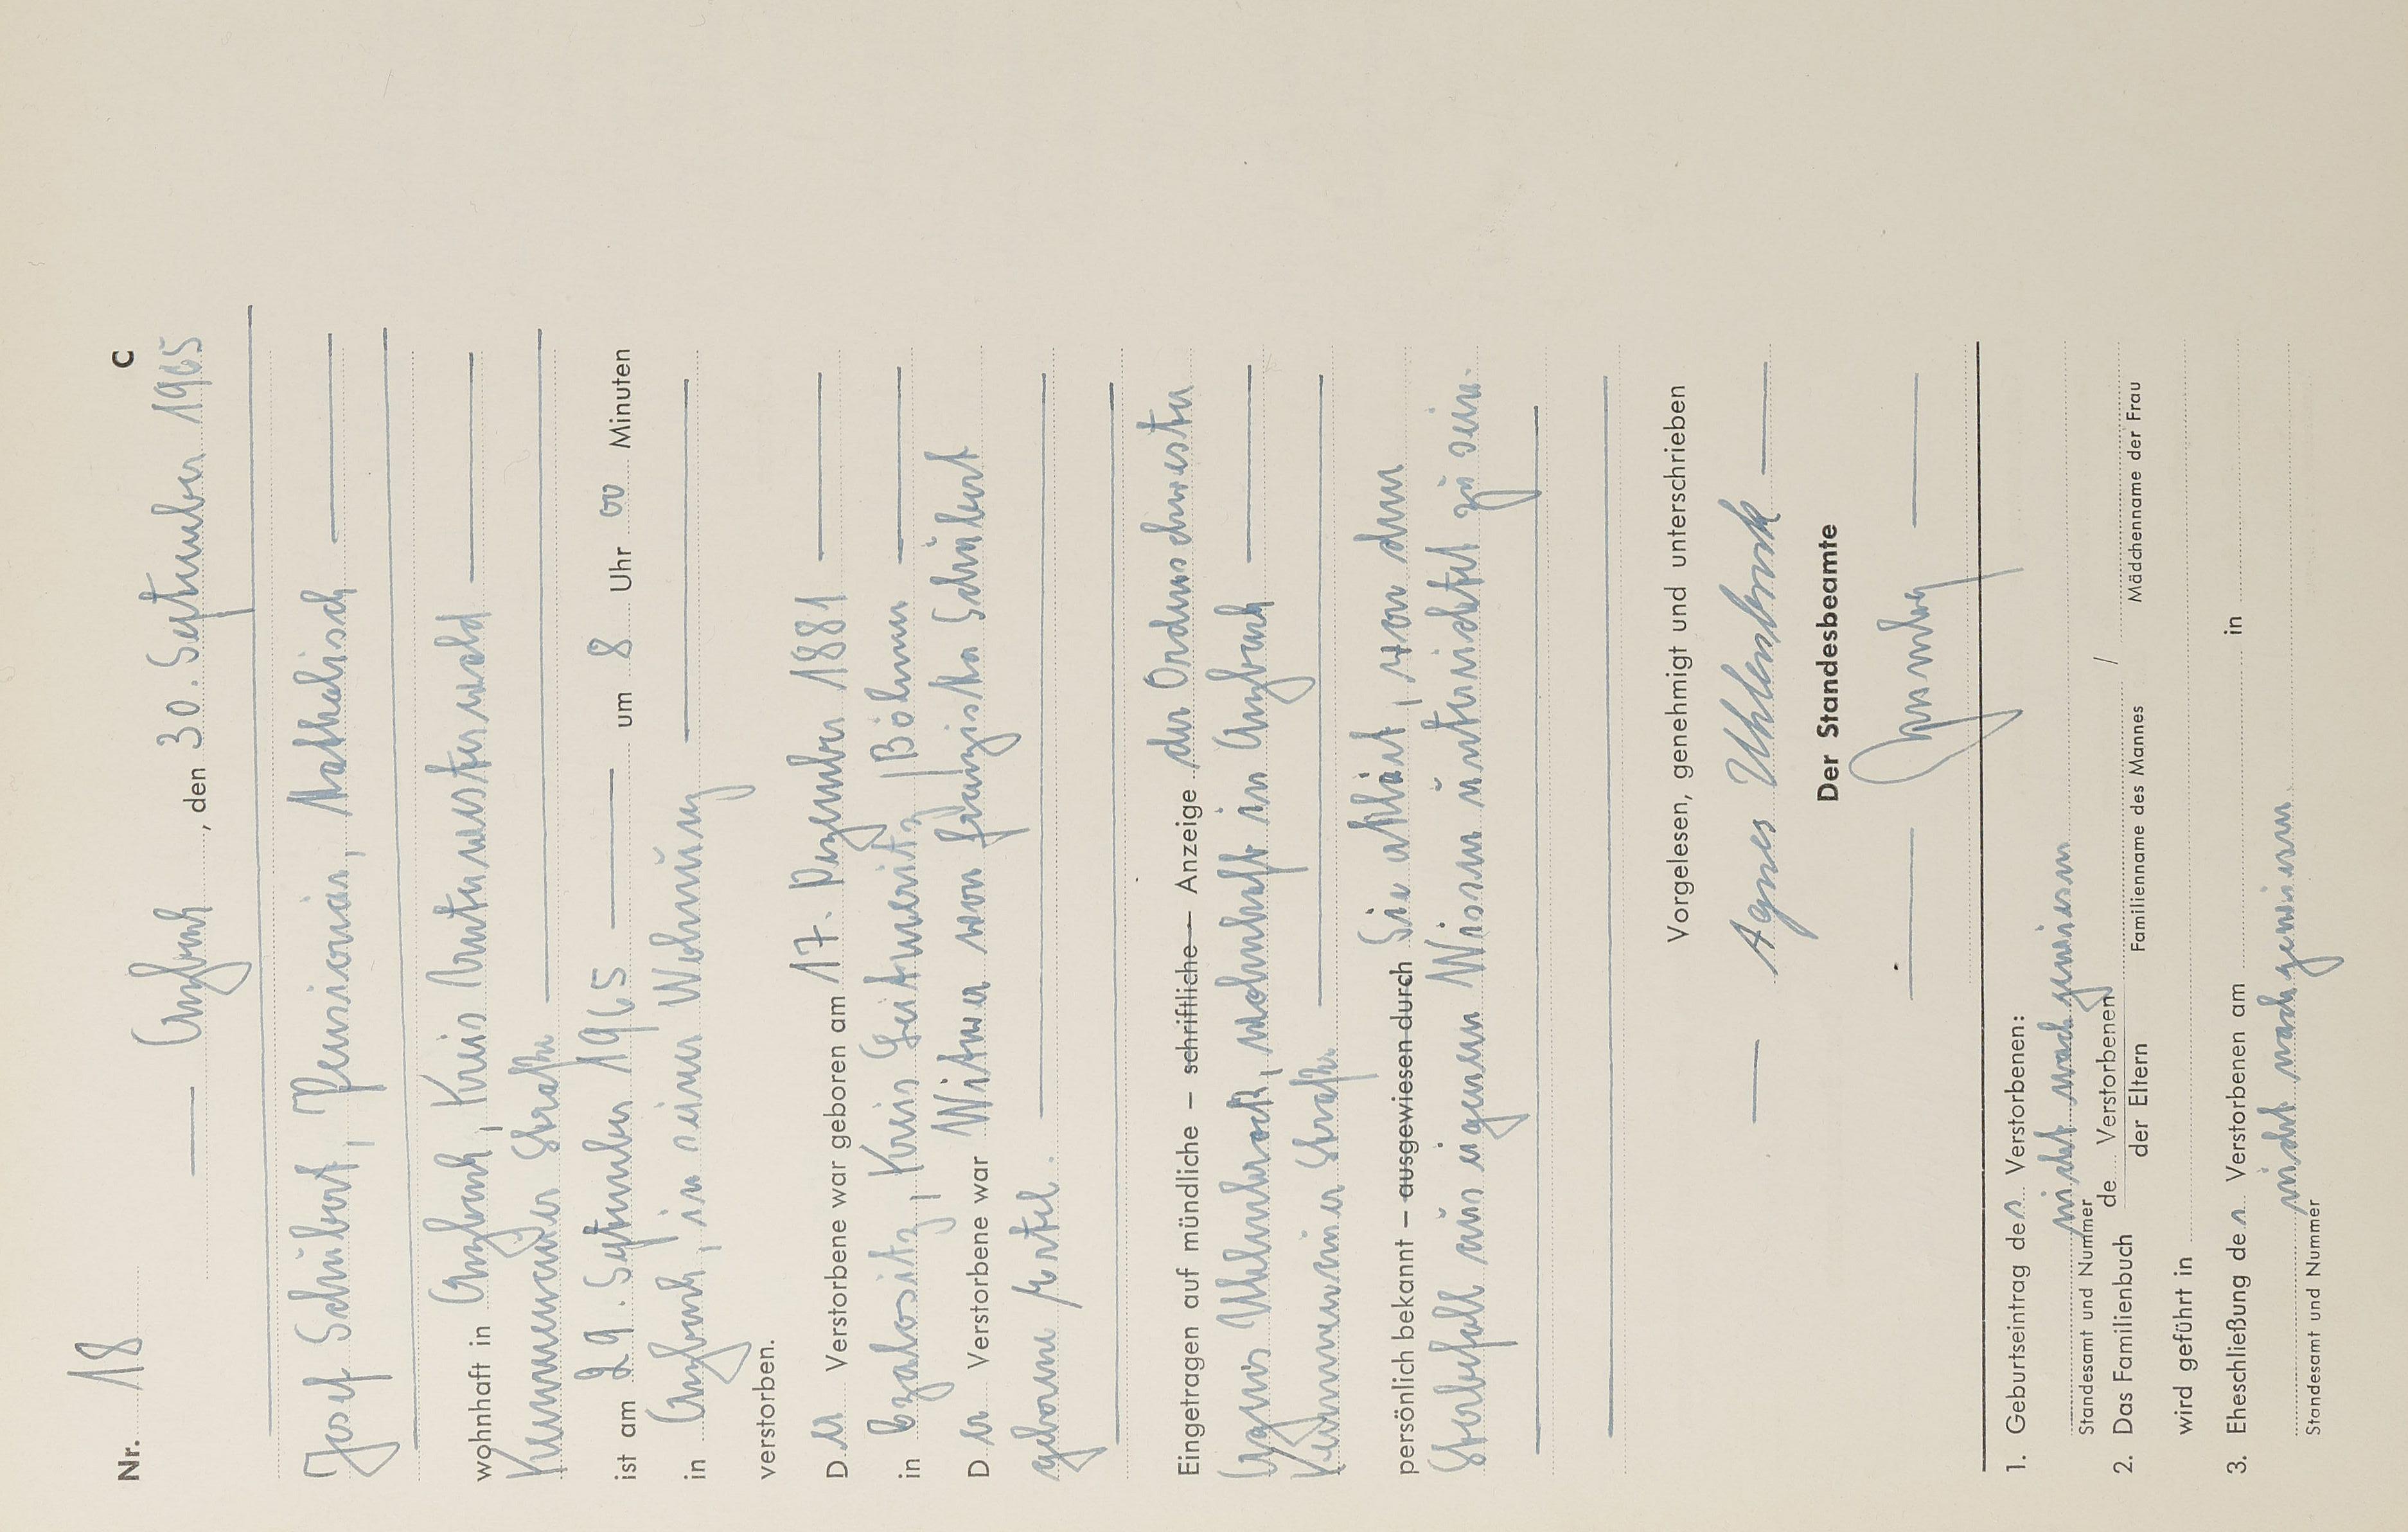 Nr. 18 C
Arzbach, den 30. September 1965
Josef Schubert, Pensionär, katholisch
wohnhaft in Arzbach, Kreis Unterwesterwald
Straße
ist am 29. September 1965 um 8 Uhr 00 Minuten
in Arzbach, in seiner Wohnung
verstorben.
D er Verstorbene war geboren am 17. Dezember 1881
in Czalositz, Kreis Leitmeritz/Böhmen
D er Verstorbene war Witwer von Franziska Schubert
geborene Ertel.
Eingetragen auf mündliche – schriftliche – Anzeige der Ordensschwester
Agnes Uhlenbrock, wohnhaft in Arzbach
Straße
persönlich bekannt – ausgewiesen durch Sie erklärt, von dem
Sterbefall aus eigenem Wissen unterrichtet zu sein.
Vorgelesen, genehmigt und unterschrieben
Agnes Uhlenbrock
Der Standesbeamte
1. Geburtseintrag des Verstorbenen:
nicht nachgewiesen
Standesamt und Nummer
2. Das Familienbuch de Verstorbenen / der Eltern /
Familienname des Mannes Mädchenname der Frau
wird geführt in
3. Eheschließung des Verstorbenen am in
nicht nachgewiesen
Standesamt und Nummer